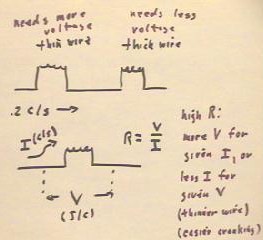 needs more
voltage
thin wire
needs less
voltage
thick wire
.2 c/s →
I (c/s)
R = V/I
V
(J/c)
high R:
more V for
given I, or
less I for
given V
(thinner wire)
(easier cranking)